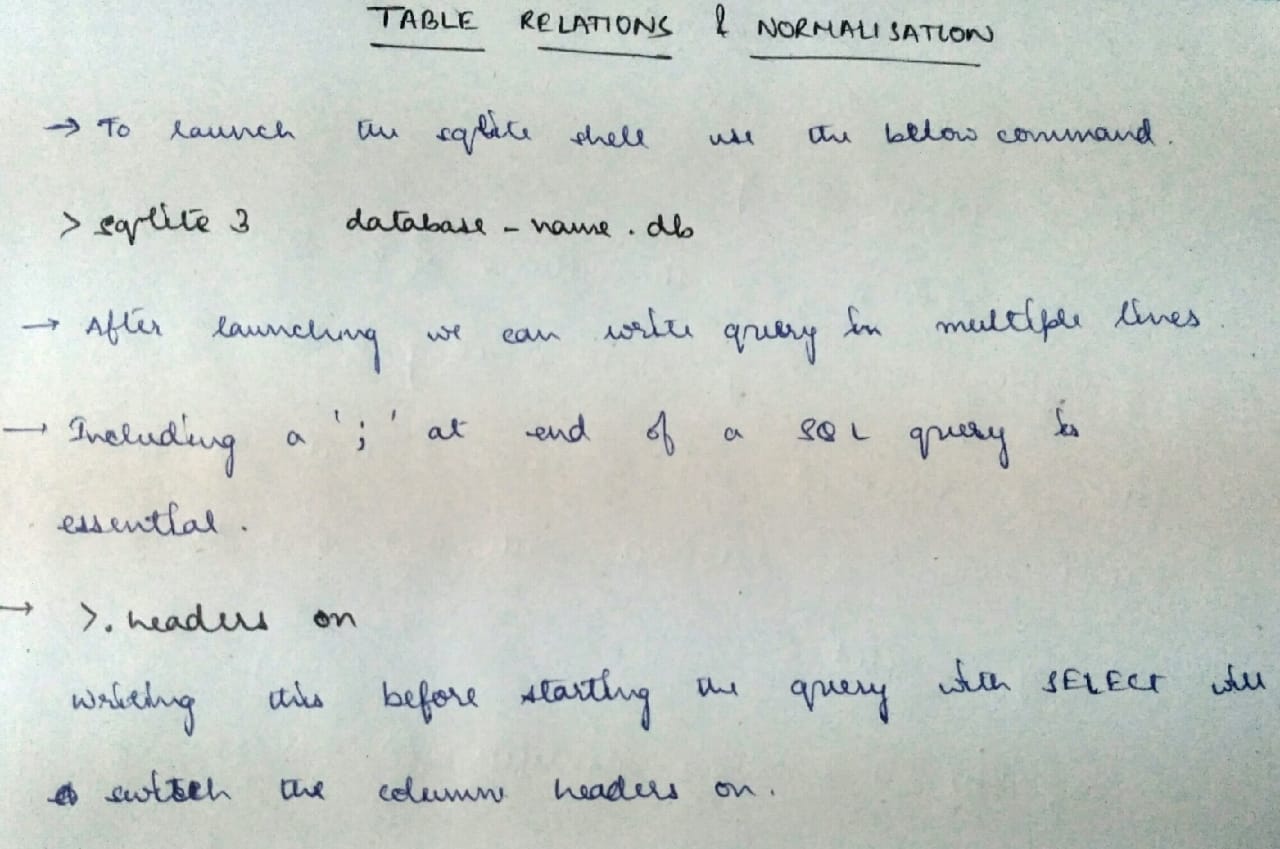 TABLE RELATIONS & NORMALISATION
→ To launch the sqlite shell use the below command.
> sqlite 3 database - name . db
→ After launching we can write query in multiple lines.
→ Including a ';' at end of a SQL query is
essential.
→ >. headers on
writing this before starting the query with SELECT will
switch the column headers on.